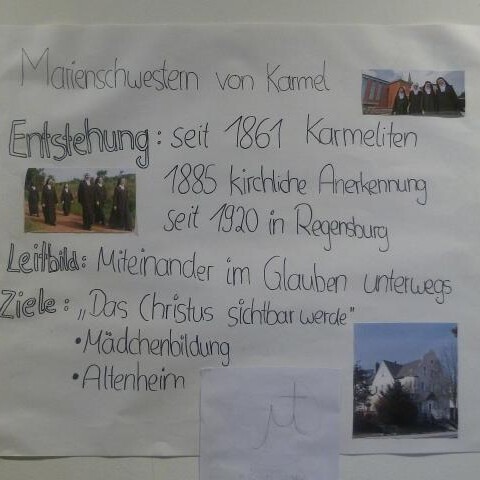 Marienschwestern von Karmel
Entstehung: seit 1861 Karmeliten
1885 kirchliche Anerkennung
seit 1920 in Regensburg
Leitbild: Miteinander im Glauben unterwegs
Ziele: „Das Christus sichtbar werde"
• Mädchenbildung
• Altenheim